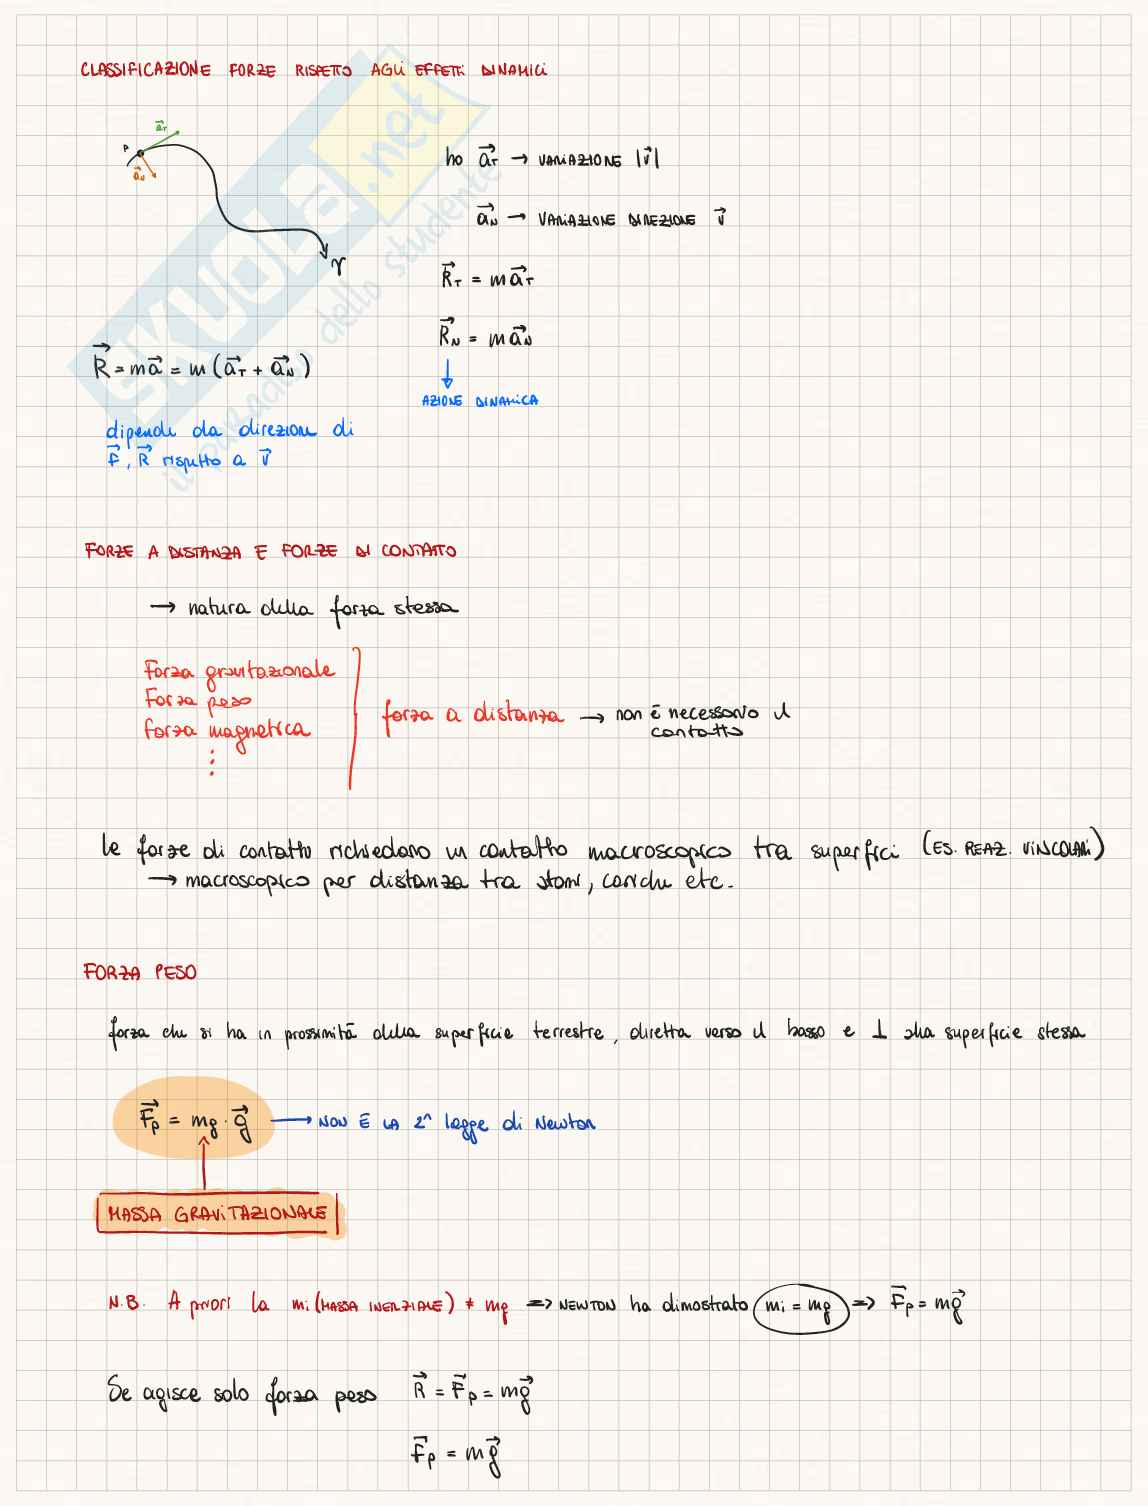 CLASSIFICAZIONE FORZE RISPETTO AGLI EFFETTI DINAMICI
P
a⃗T
a⃗N
γ
ho a⃗T → VARIAZIONE |v⃗|
a⃗N → VARIAZIONE DIREZIONE v⃗
R⃗T = m a⃗T
R⃗N = m a⃗N
AZIONE DINAMICA
R⃗ = m a⃗ = m (a⃗T + a⃗N)
dipende da direzione di
F⃗, R⃗ rispetto a v⃗
SKUOLA.net
il paradiso dello studente
FORZE A DISTANZA E FORZE DI CONTATTO
→ natura della forza stessa
Forza gravitazionale
Forza peso
forza magnetica
⋮
forza a distanza → non è necessario il
contatto
le forze di contatto richiedono un contatto macroscopico tra superfici (ES. REAZ. VINCOLARI)
→ macroscopico per distanza tra atomi, cariche etc.
FORZA PESO
forza che si ha in prossimità della superficie terrestre, diretta verso il basso e ⊥ alla superficie stessa
F⃗p = mg · g⃗ → NON È LA 2^ legge di Newton
MASSA GRAVITAZIONALE
N.B. A priori la mi (MASSA INERZIALE) ≠ mg => NEWTON ha dimostrato mi = mg => F⃗p = m g⃗
Se agisce solo forza peso R⃗ = F⃗p = m g⃗
F⃗p = m g⃗